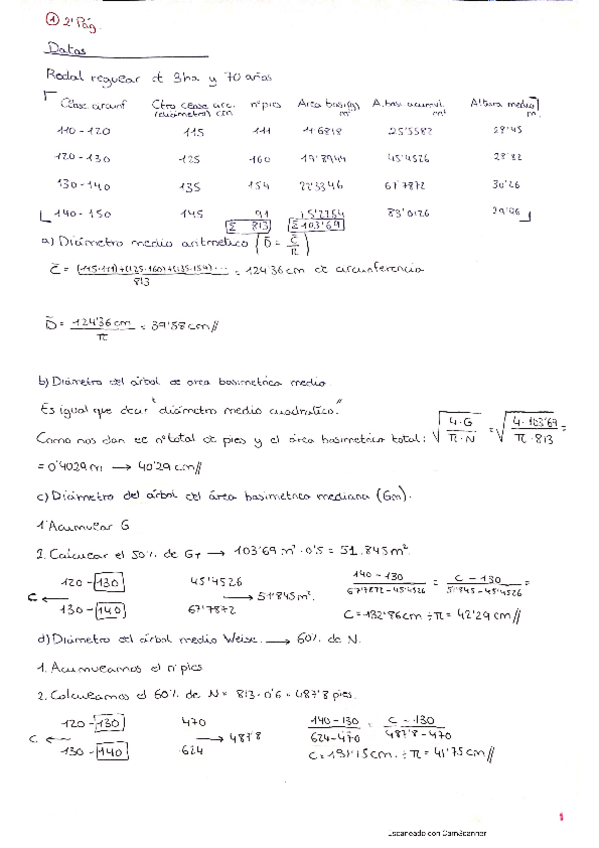 ① 2ª Pág.
Datos
Rodal regular de 3ha y 70 años
Clase circunf Ctro clase circ. (diámetro) cm nº pies Area basi(g) m² A. basi acumul. m² Altura media m.
110-120 115 111 11'6818 25'5582 28'45
120-130 125 160 19'8944 45'4526
130-140 135 154 22'3346 67'7872 30'26
140-150 145 91 15'2254 83'0126
Σ 813 Σ 103'69
a) Diámetro medio aritmético (D̄ = C̄/π)
C̄ = (115·111)+(125·160)+(135·154)... / 813 = 124'36 cm de circunferencia
D̄ = 124'36 cm / π = 39'58 cm//
b) Diámetro del árbol de area basimetrica media
Es igual que decir "diámetro medio cuadratico."
Como nos dan el nº total de pies y el área basimetrica total: √(4·G / π·N) = √(4·103'69 / π·813) =
= 0'4029 m → 40'29 cm//
c) Diámetro del árbol del área basimetrica mediana (Gm).
1. Acumular G
2. Calcular el 50% de GT → 103'69 m²·0'5 = 51.845 m².
120-130 45'4526 140-130 / 67'7872-45'4526 = C-130 / 51'845-45'4526 =
C ← → 51'845 m².
130-140 67'7872 C=132'86cm ÷π = 42'29 cm//
d) Diámetro del árbol medio Weise. → 60% de N.
1. Acumulamos el nº pies
2. Calculamos el 60% de N = 813·0'6 = 487'8 pies.
120-130 470 140-130 / 624-470 = C-130 / 487'8-470
C ← → 487'8
130-140 624 C=131'15cm. ÷π = 41'75 cm//
1
Escaneado con CamScanner